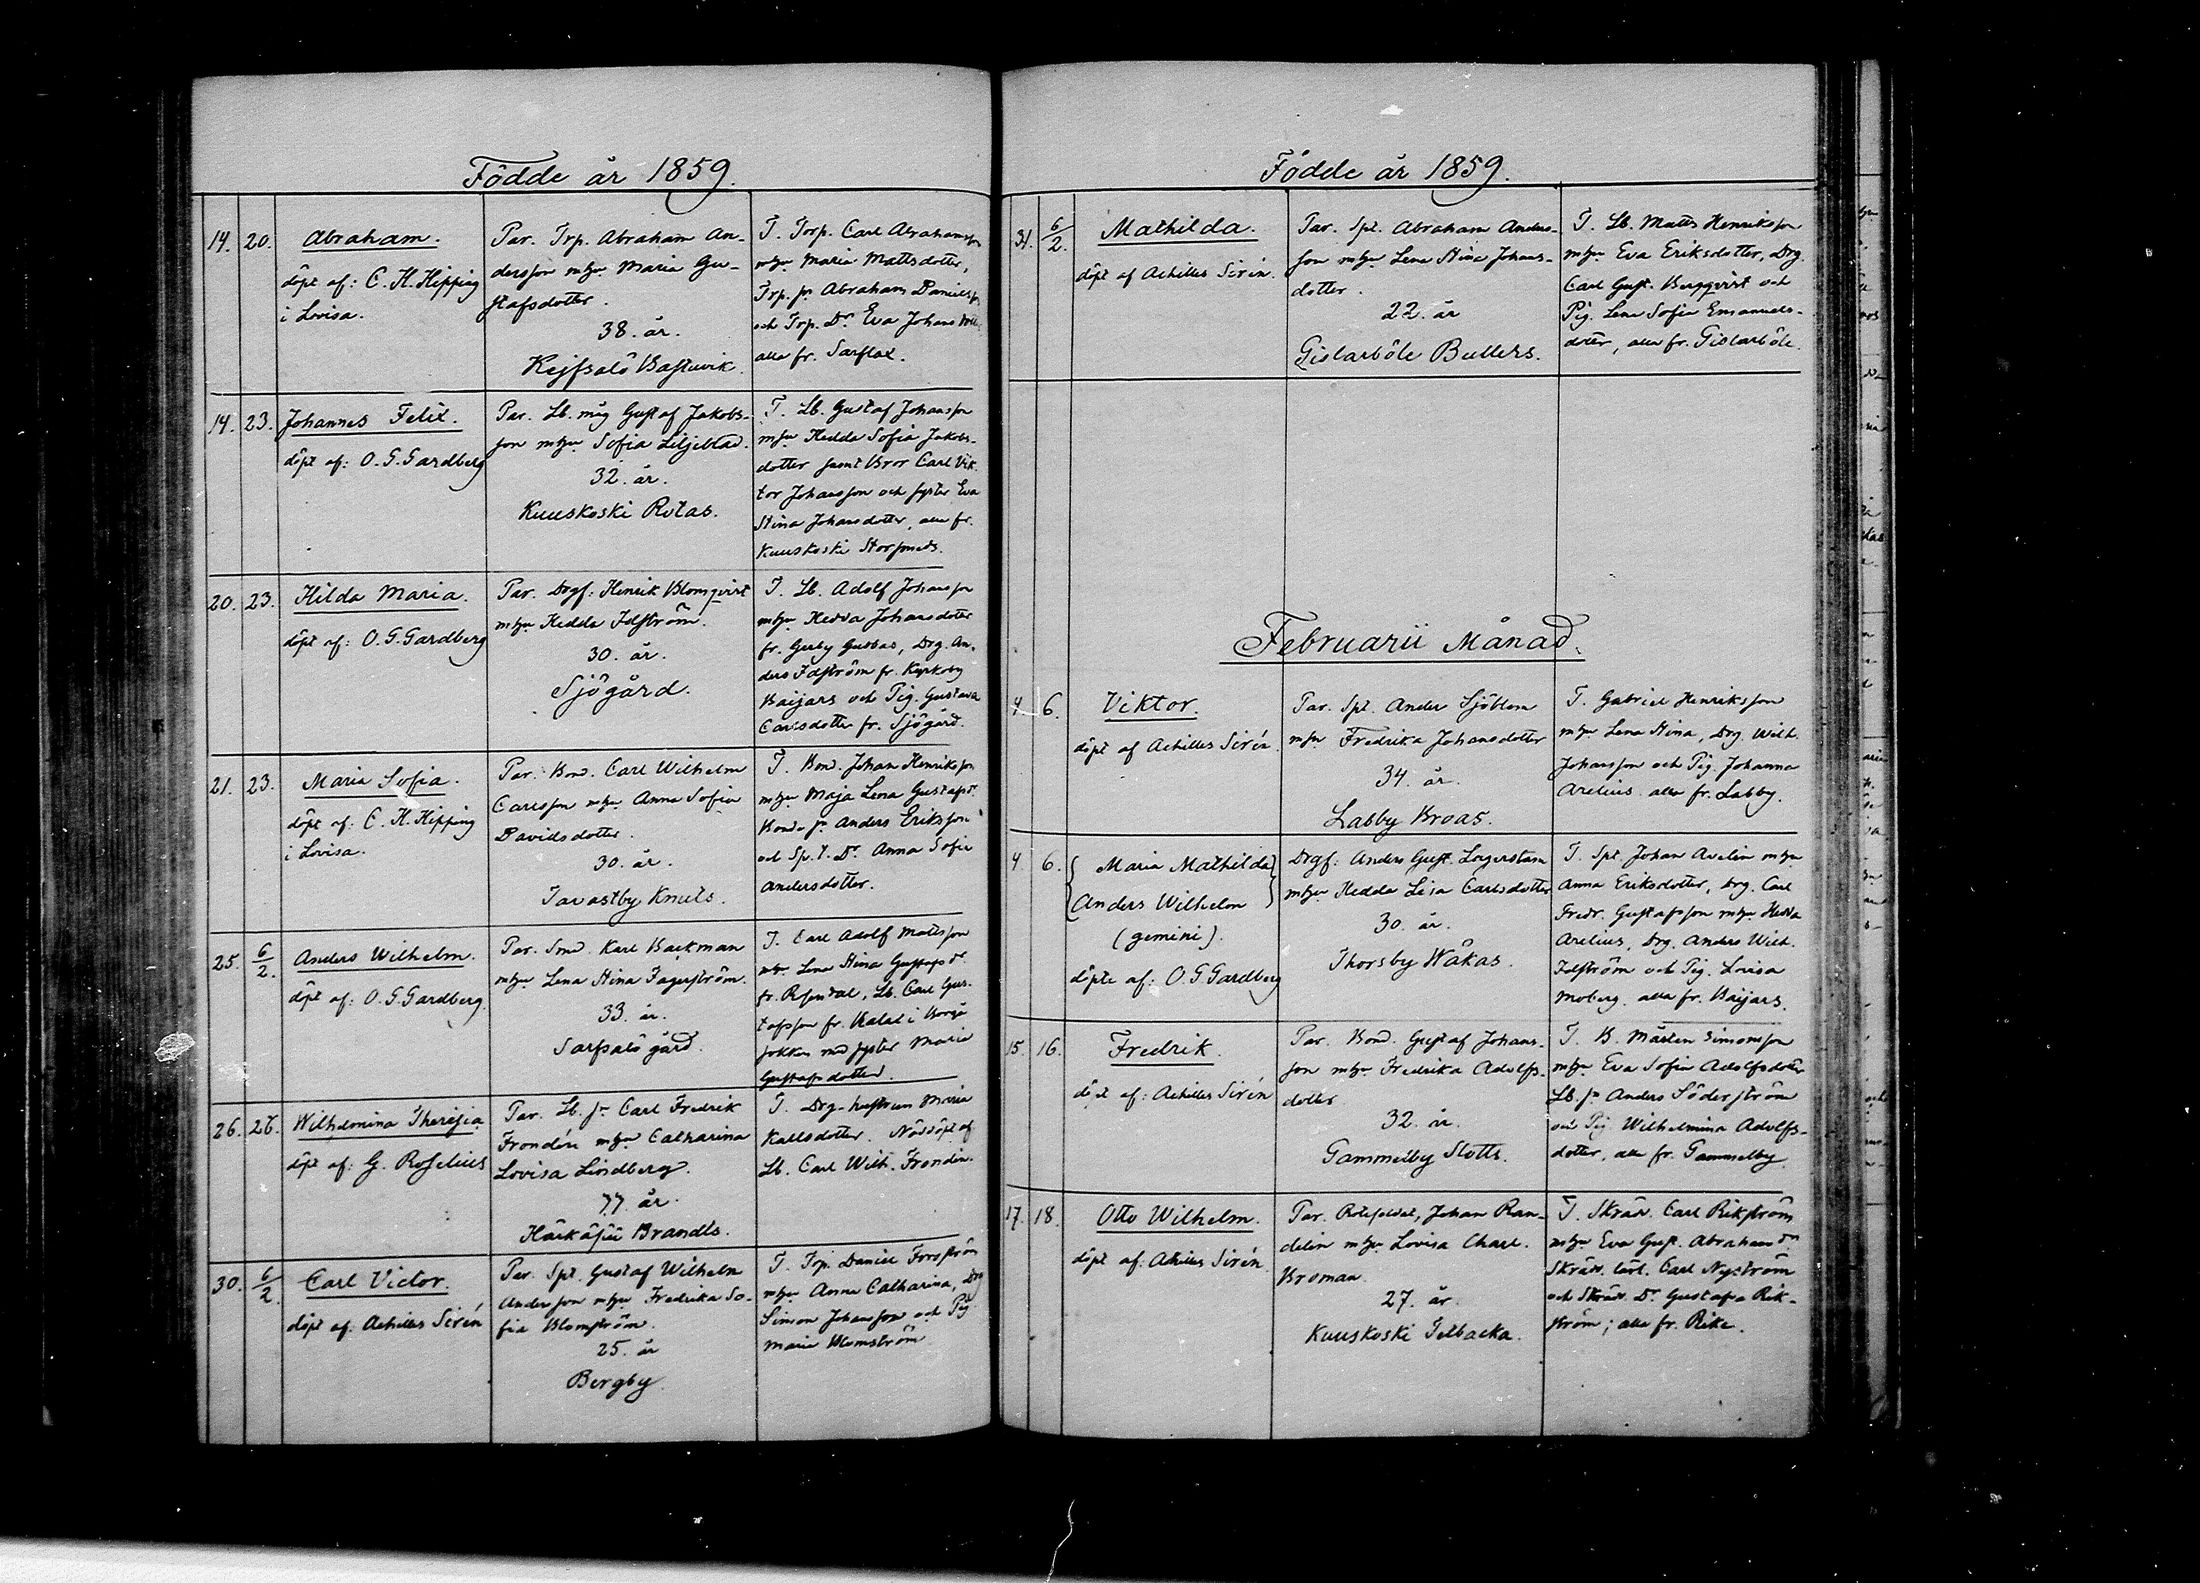 Födde år 1859.
14. 20. Abraham.
döpt af: C. H. Hipping
i Lovisa.
Par. Trp. Abraham An-
dersson m hu Maria Gu-
stafsdotter.
38. år.
Kejsalö Bastuvik.
T. Torp. Carl Abrahamsson
m hu Maria Mattsdotter,
Trp. sn Abraham Danielsson
och Trp. Dr. Eva Johans
alla fr. Sarflax.
14. 23. Johannes Felix.
döpt af: O. G. Gardberg
Par. Lb. måg Gustaf Jakobs-
son m hu Sofia Liljeblad.
32. år.
Kuuskoski Rotas.
T. Lb. Gustaf Johansson
m hu Hedda Sofia Jakobs-
dotter samt Bror Carl Vik-
tor Johansson och syster Eva
Stina Johansdotter, alla fr.
Kuuskoski Storsmeds.
20. 23. Hilda Maria.
döpt af: O. G. Gardberg
Par. Drgf. Henrik Blomqvist
m hu Hedda Idström.
30. år.
Sjögård.
T. Lb. Adolf Johansson
m hu Hedda Johansdotter
fr. Gerby Gubbas, Drg. An-
ders Idström fr. Kyrkoby
Baijars och Pig. Gustava
Carlsdotter fr. Sjögård.
21. 23. Maria Sofia.
döpt af: C. H. Hipping
i Lovisa.
Par. Bond. Carl Wilhelm
Carlsson m hu Anna Sofia
Davidsdotter.
30. år.
Tavastby Knuts.
T. Bond. Johan Henriksson
m hu Maja Lena Gustafsdr
Bond. sn Anders Eriksson
och Sp. t. Dr. Anna Sofia
Andersdotter.
25. 6/2. Anders Wilhelm.
döpt af: O. G. Gardberg.
Par. Smd. Karl Backman
m hu Lena Stina Fagerström.
33. år.
Sarfsalö gård.
T. Carl Adolf Mattsson
m hu Lena Stina Gustafsdr
fr. Rosendal, Lb. Carl Gus-
tafsson fr. i Borgå
sokken med syster Maria
Gustafsdotter.
26. 26. Wilhelmina Theresia
döpt af: G. Roselius
Par. Lb. sn Carl Fredrik
Frondén m hu Catharina
Lovisa Lindberg.
77 år.
Härkäpää Brandts.
T. Drg. hustrun Maria
Kallsdotter. Nöddöpt af
Lb. Carl Wilh. Frondén.
30. 6/2. Carl Victor.
döpt af: Achilles Sirén
Par. Spt. Gustaf Wilhelm
Andersson m hu Fredrika So-
fia Blomström.
25. år
Bergby.
T. Trp. Daniel Forsström
m hu Anna Catharina, Drg
Simon Johansson och Pig
Maria Blomström
Födde år 1859.
31. 6/2. Mathilda.
döpt af Achilles Sirén.
Par. Spt. Abraham Anders-
son m hu Lena Stina Johans-
dotter.
22. år
Gislarböle Bullers.
T. Lb. Matts Henriksson
m hu Eva Eriksdotter, Drg.
Carl Gust. Bergqvist och
Pig. Lena Sofia Emanuels-
dotter, alla fr. Gislarböle.
Februarii Månad.
4. 6. Viktor.
döpt af Achilles Sirén.
Par. Spt. Ander Sjöblom
m hu Fredrika Johansdotter
34. år.
Labby Broas.
T. Gabriel Henriksson
m hu Lena Stina, Drg. Wilh.
Johansson och Pig. Johanna
Arelius. alla fr. Labby.
4. 6. Maria Mathilda
Anders Wilhelm
(gemini).
döpte af: O. G. Gardberg
Drgf: Anders Gust. Lagerstam
m hu Hedda Lisa Carlsdotter
30. år.
Thorsby Wåkas.
T. Spt. Johan Avelin m hu
Anna Eriksdotter, Drg. Carl
Fredr. Gustafsson m hu Hedda
Arelius, Drg. Anders Wilh.
Idström och Pig. Lovisa
Moberg. alla fr. Baijars.
15. 16. Fredrik.
döpt af: Achilles Sirén
Par. Bond. Gustaf Johans-
son m hu Fredrika Adolfs-
dotter
32. år.
Gammelby Slotts.
T. B. Mårten Simonsson
m hu Eva Sofia Adolfsdotter
Lb. sn Anders Söderström
och Pig. Wilhelmina Adolfs-
dotter, alla fr. Gammelby.
17. 18. Otto Wilhelm.
döpt af: Achilles Sirén.
Par. Johan Ran-
delin m hu Lovisa Charl.
Broman.
27. år.
Kuuskoski Tetbacka.
T. Skrädd. Carl Rikström
m hu Eva Gust. Abrahamsdr
Skrädd. lärl. Carl Nyström
och Skrädd. Dr. Gustafa Rik-
ström; alla fr. Rike.